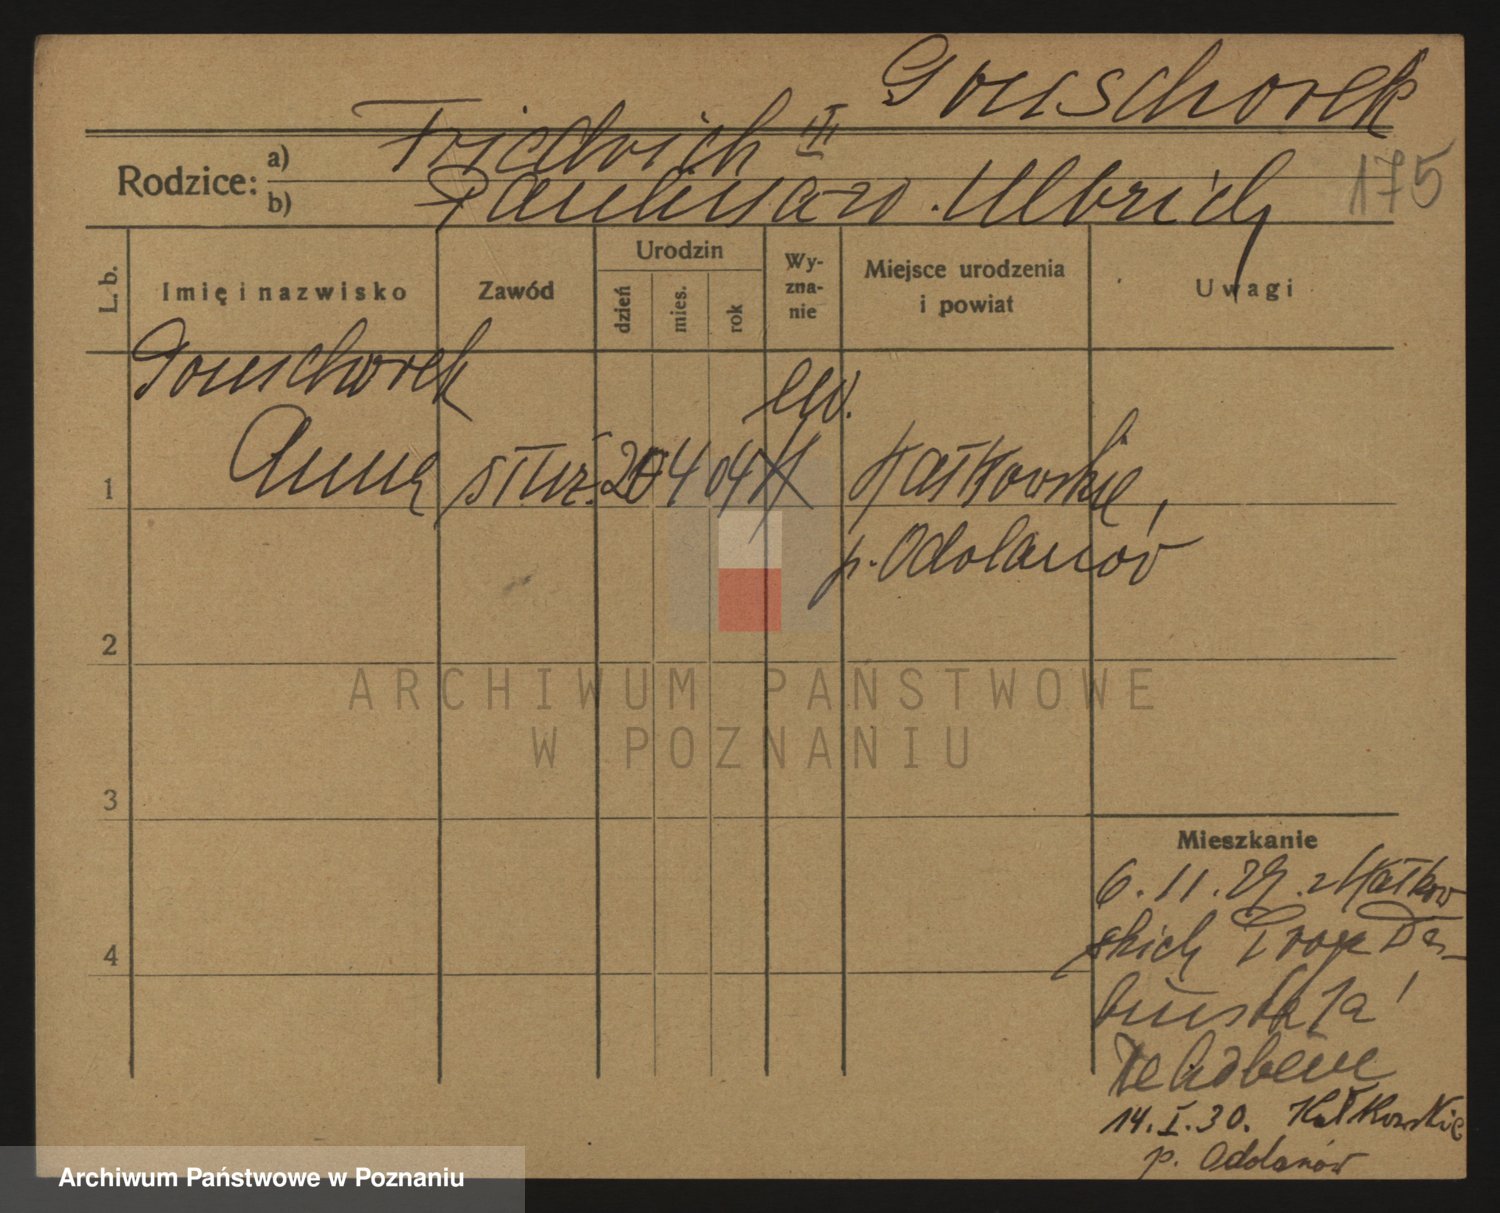 Gouschorek
Friedrich III
Rodzice: a)
b) Paulina zo. Ulbrich
175
L. b.
Imię i nazwisko
Zawód
Urodzin
dzień
mies.
rok
Wy-
zna-
nie
Miejsce urodzenia
i powiat
Uwagi
Gouschorek
ew.
1 Anna służ. 20 4 04 Kałkowskie,
p. Odolanów
2
3
4
ARCHIWUM PAŃSTWOWE
W POZNANIU
Mieszkanie
6.11.29. z Kałkow
skich
14.I.30. Kałkowskie
p. Odolanów
Archiwum Państwowe w Poznaniu